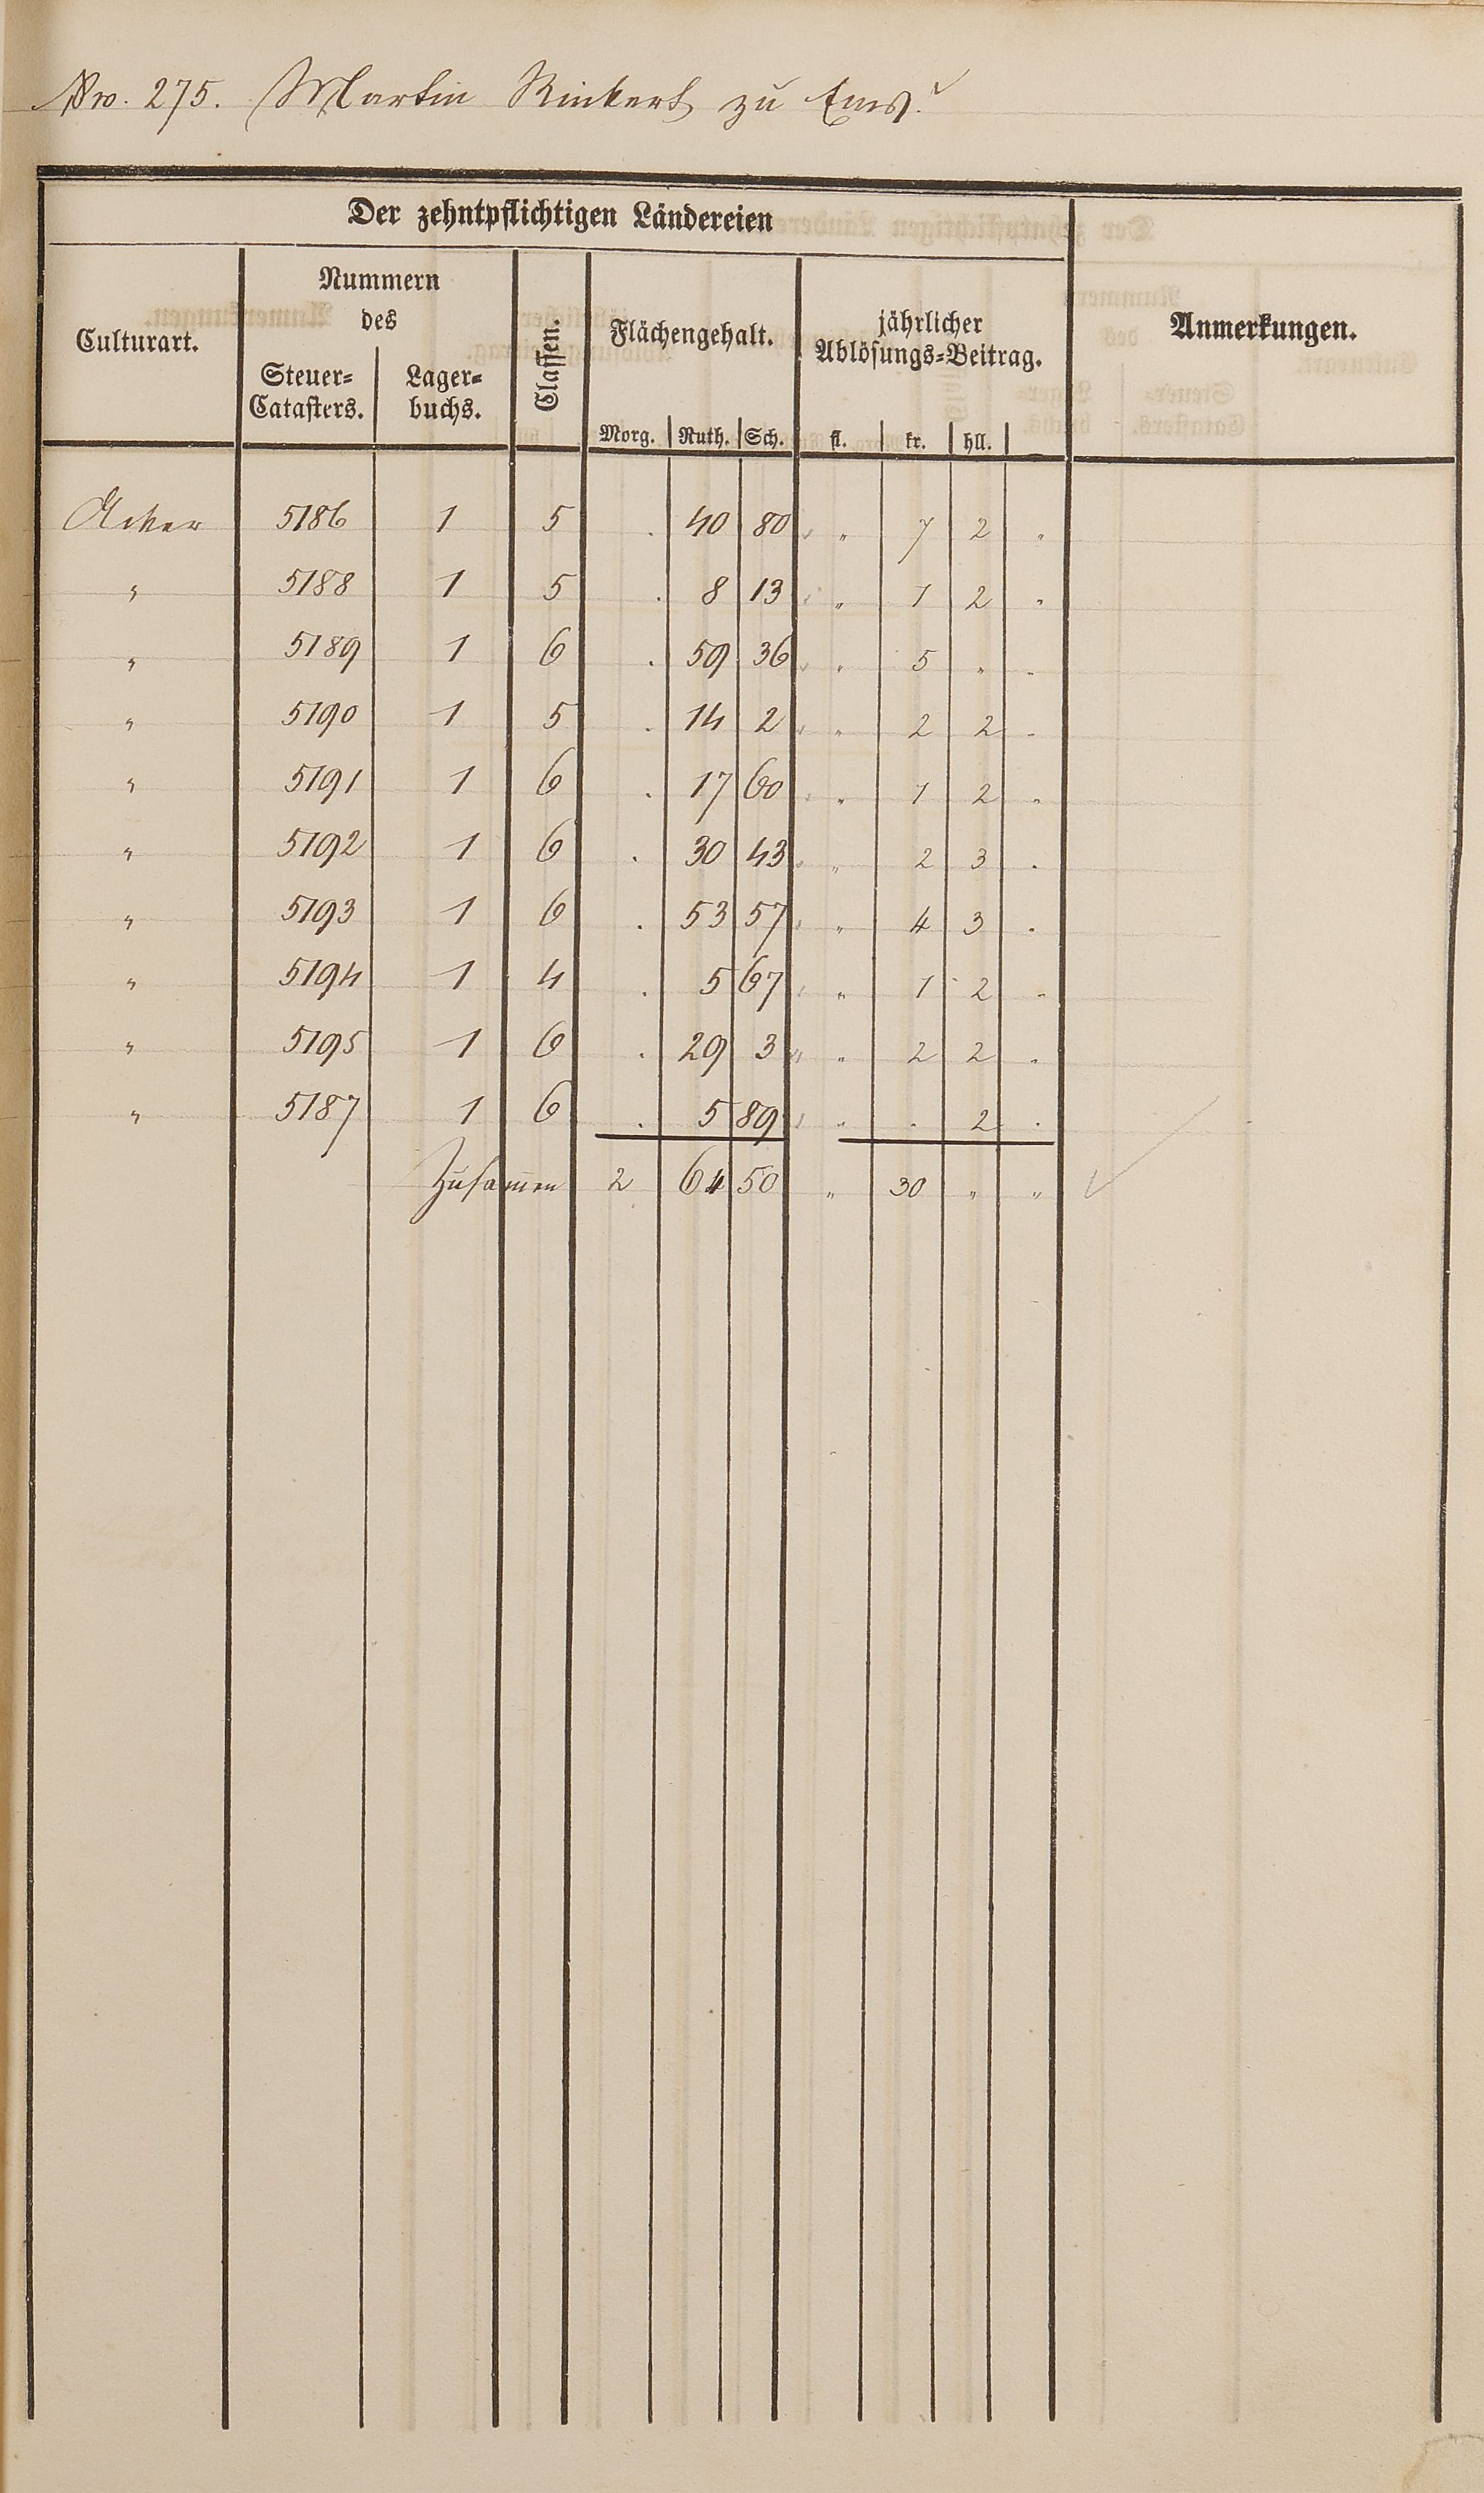 No. 275. Martin Rinkert zu Ems.
Der zehntpflichtigen Ländereien
Culturart.
Nummern
des
Steuer=
Catasters.
Lager=
buchs.
Classen.
Flächengehalt.
Morg. Ruth. Sch.
jährlicher
Ablösungs=Beitrag.
fl. kr. hll.
Anmerkungen.
Acker 5186 1 5 . 40 80 " 7 2 "
" 5188 1 5 . 8 13 " 1 2 "
" 5189 1 6 . 59 36 " 5 " "
" 5190 1 5 . 14 2 " 2 2 "
" 5191 1 6 . 17 60 " 1 2 "
" 5192 1 6 . 30 43 " 2 3 .
" 5193 1 6 . 53 57 " 4 3 .
" 5194 1 4 . 5 67 " 1 2 "
" 5195 1 6 . 29 3 " 2 2 "
" 5187 1 6 . 5 89 " . 2 .
Zusamen 2 64 50 " 30 " "